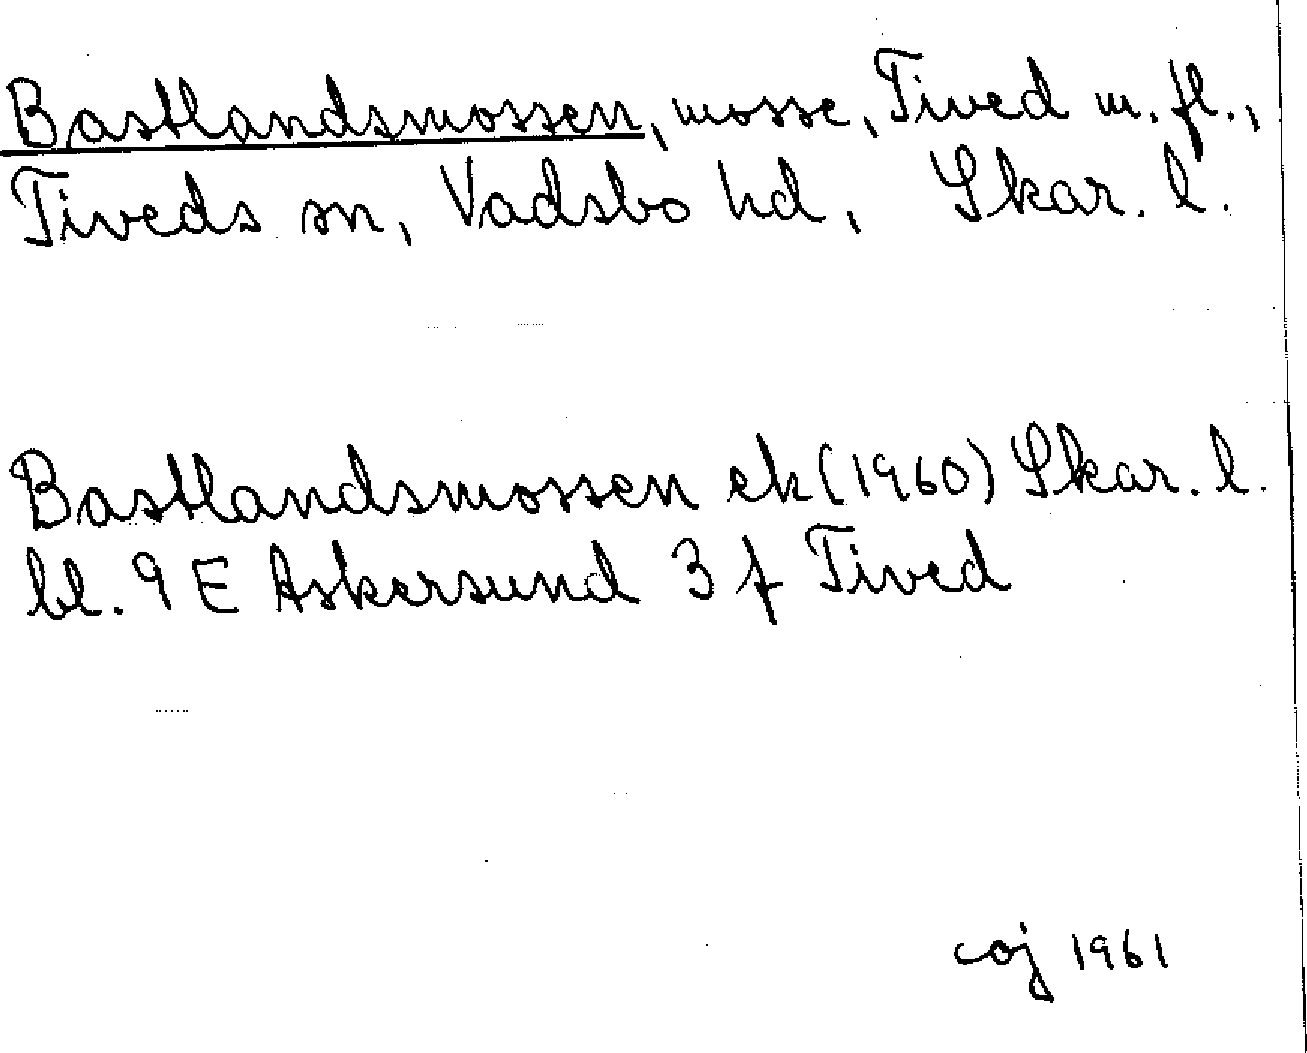 Bastlandsmossen, mosse, Tived m. fl.,
Tiveds sn, Vadsbo hd, Skar. l.
Bastlandsmossen ek (1960) Skar. l.
bl. 9 E Askersund 3 f Tived
coj 1961